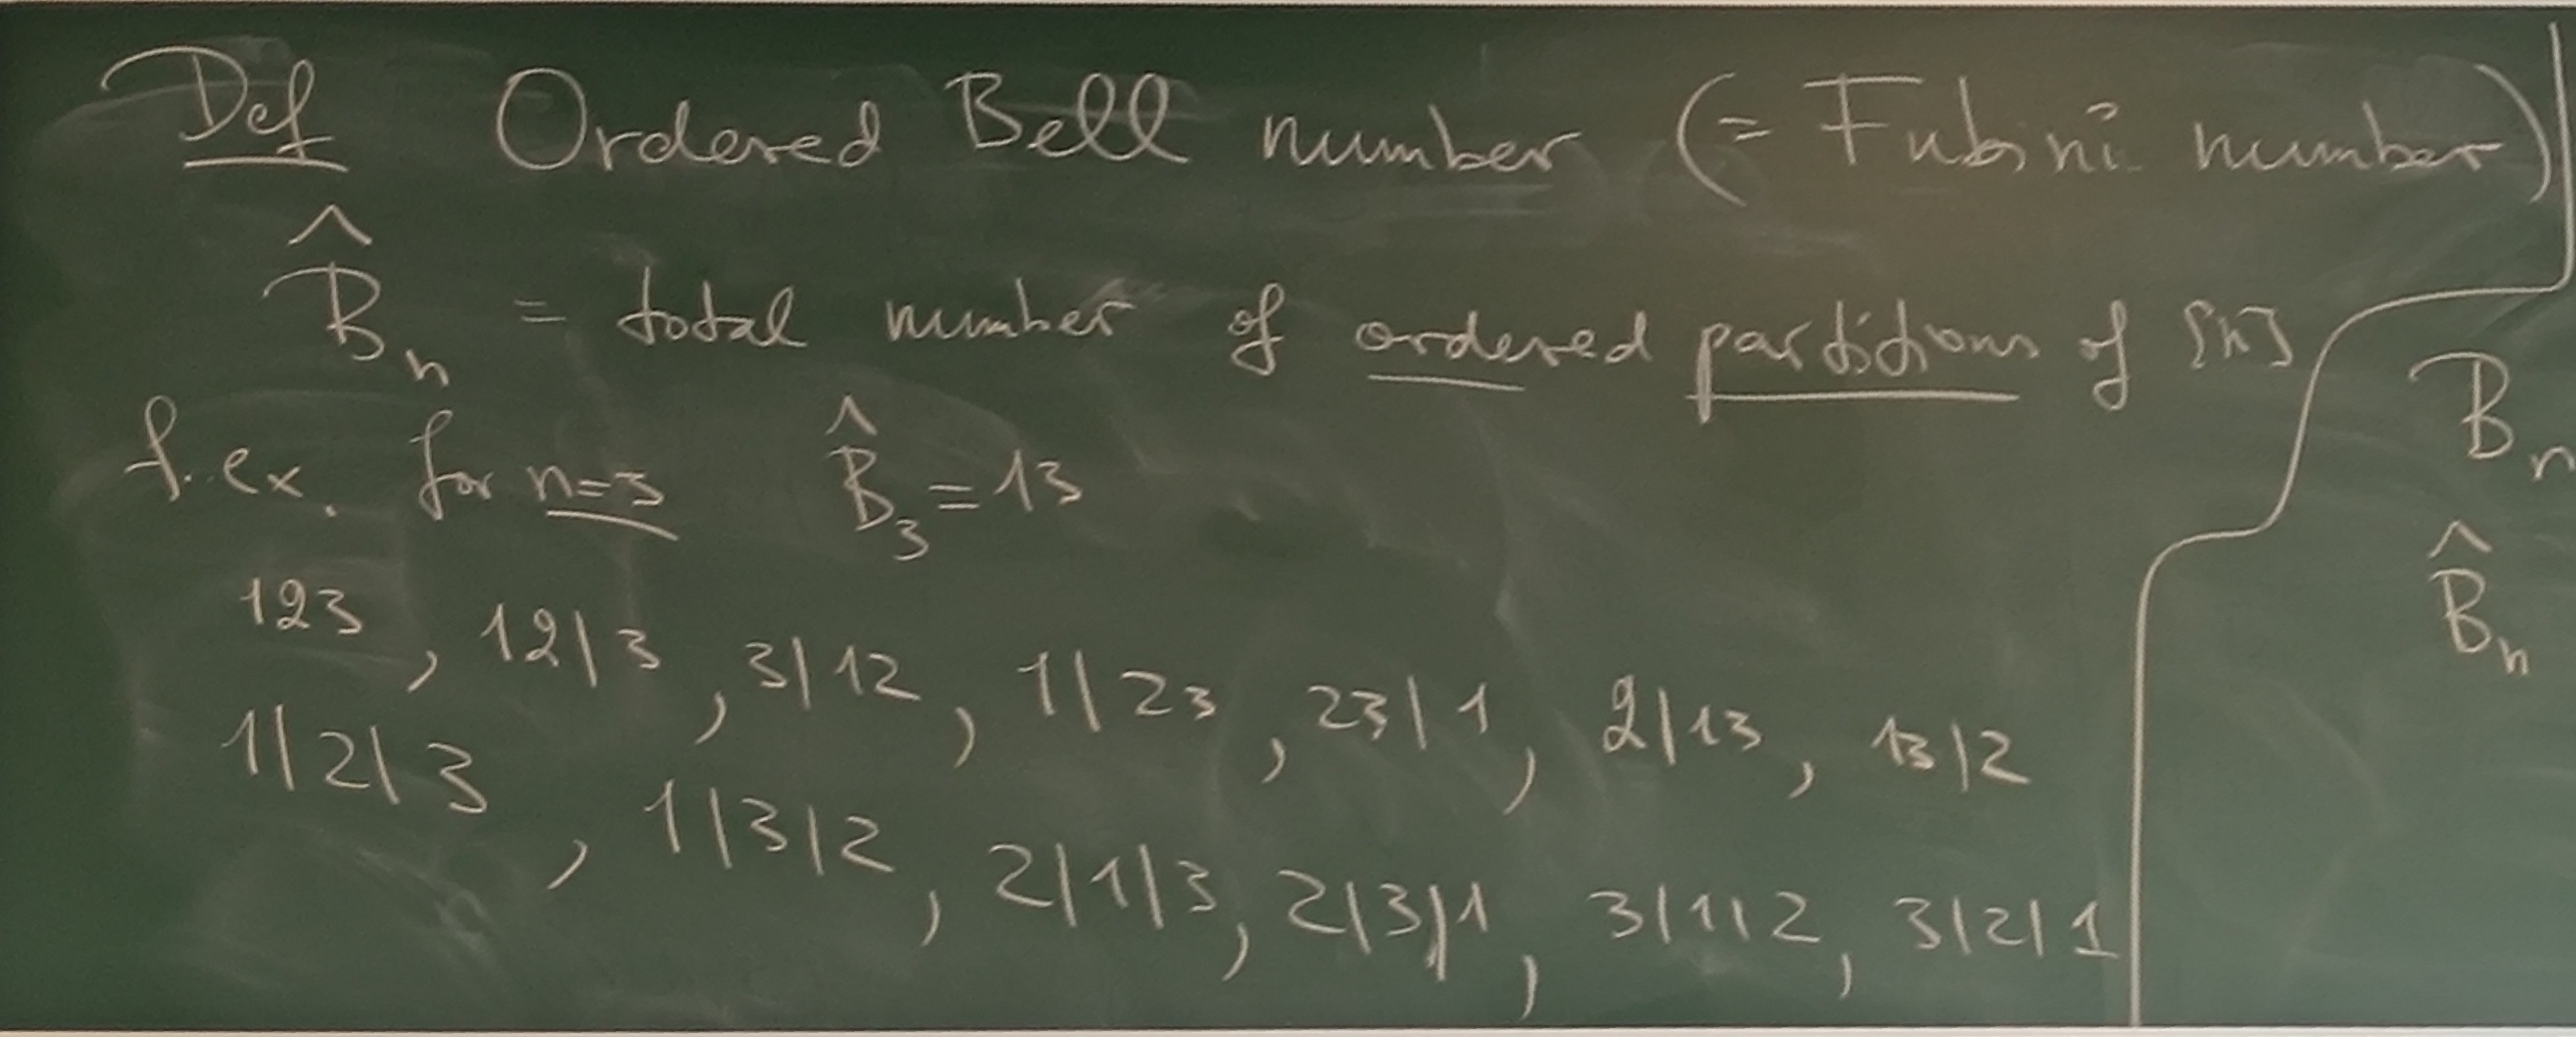 Def Ordered Bell number (= Fubini number)
B̂ₙ = total number of ordered partitions of [n]
f. ex. for n=3 B̂₃ = 13
123, 12|3, 3|12, 1|23, 23|1, 2|13, 13|2
1|2|3, 1|3|2, 2|1|3, 2|3|1, 3|1|2, 3|2|1
Bₙ
B̂ₙ